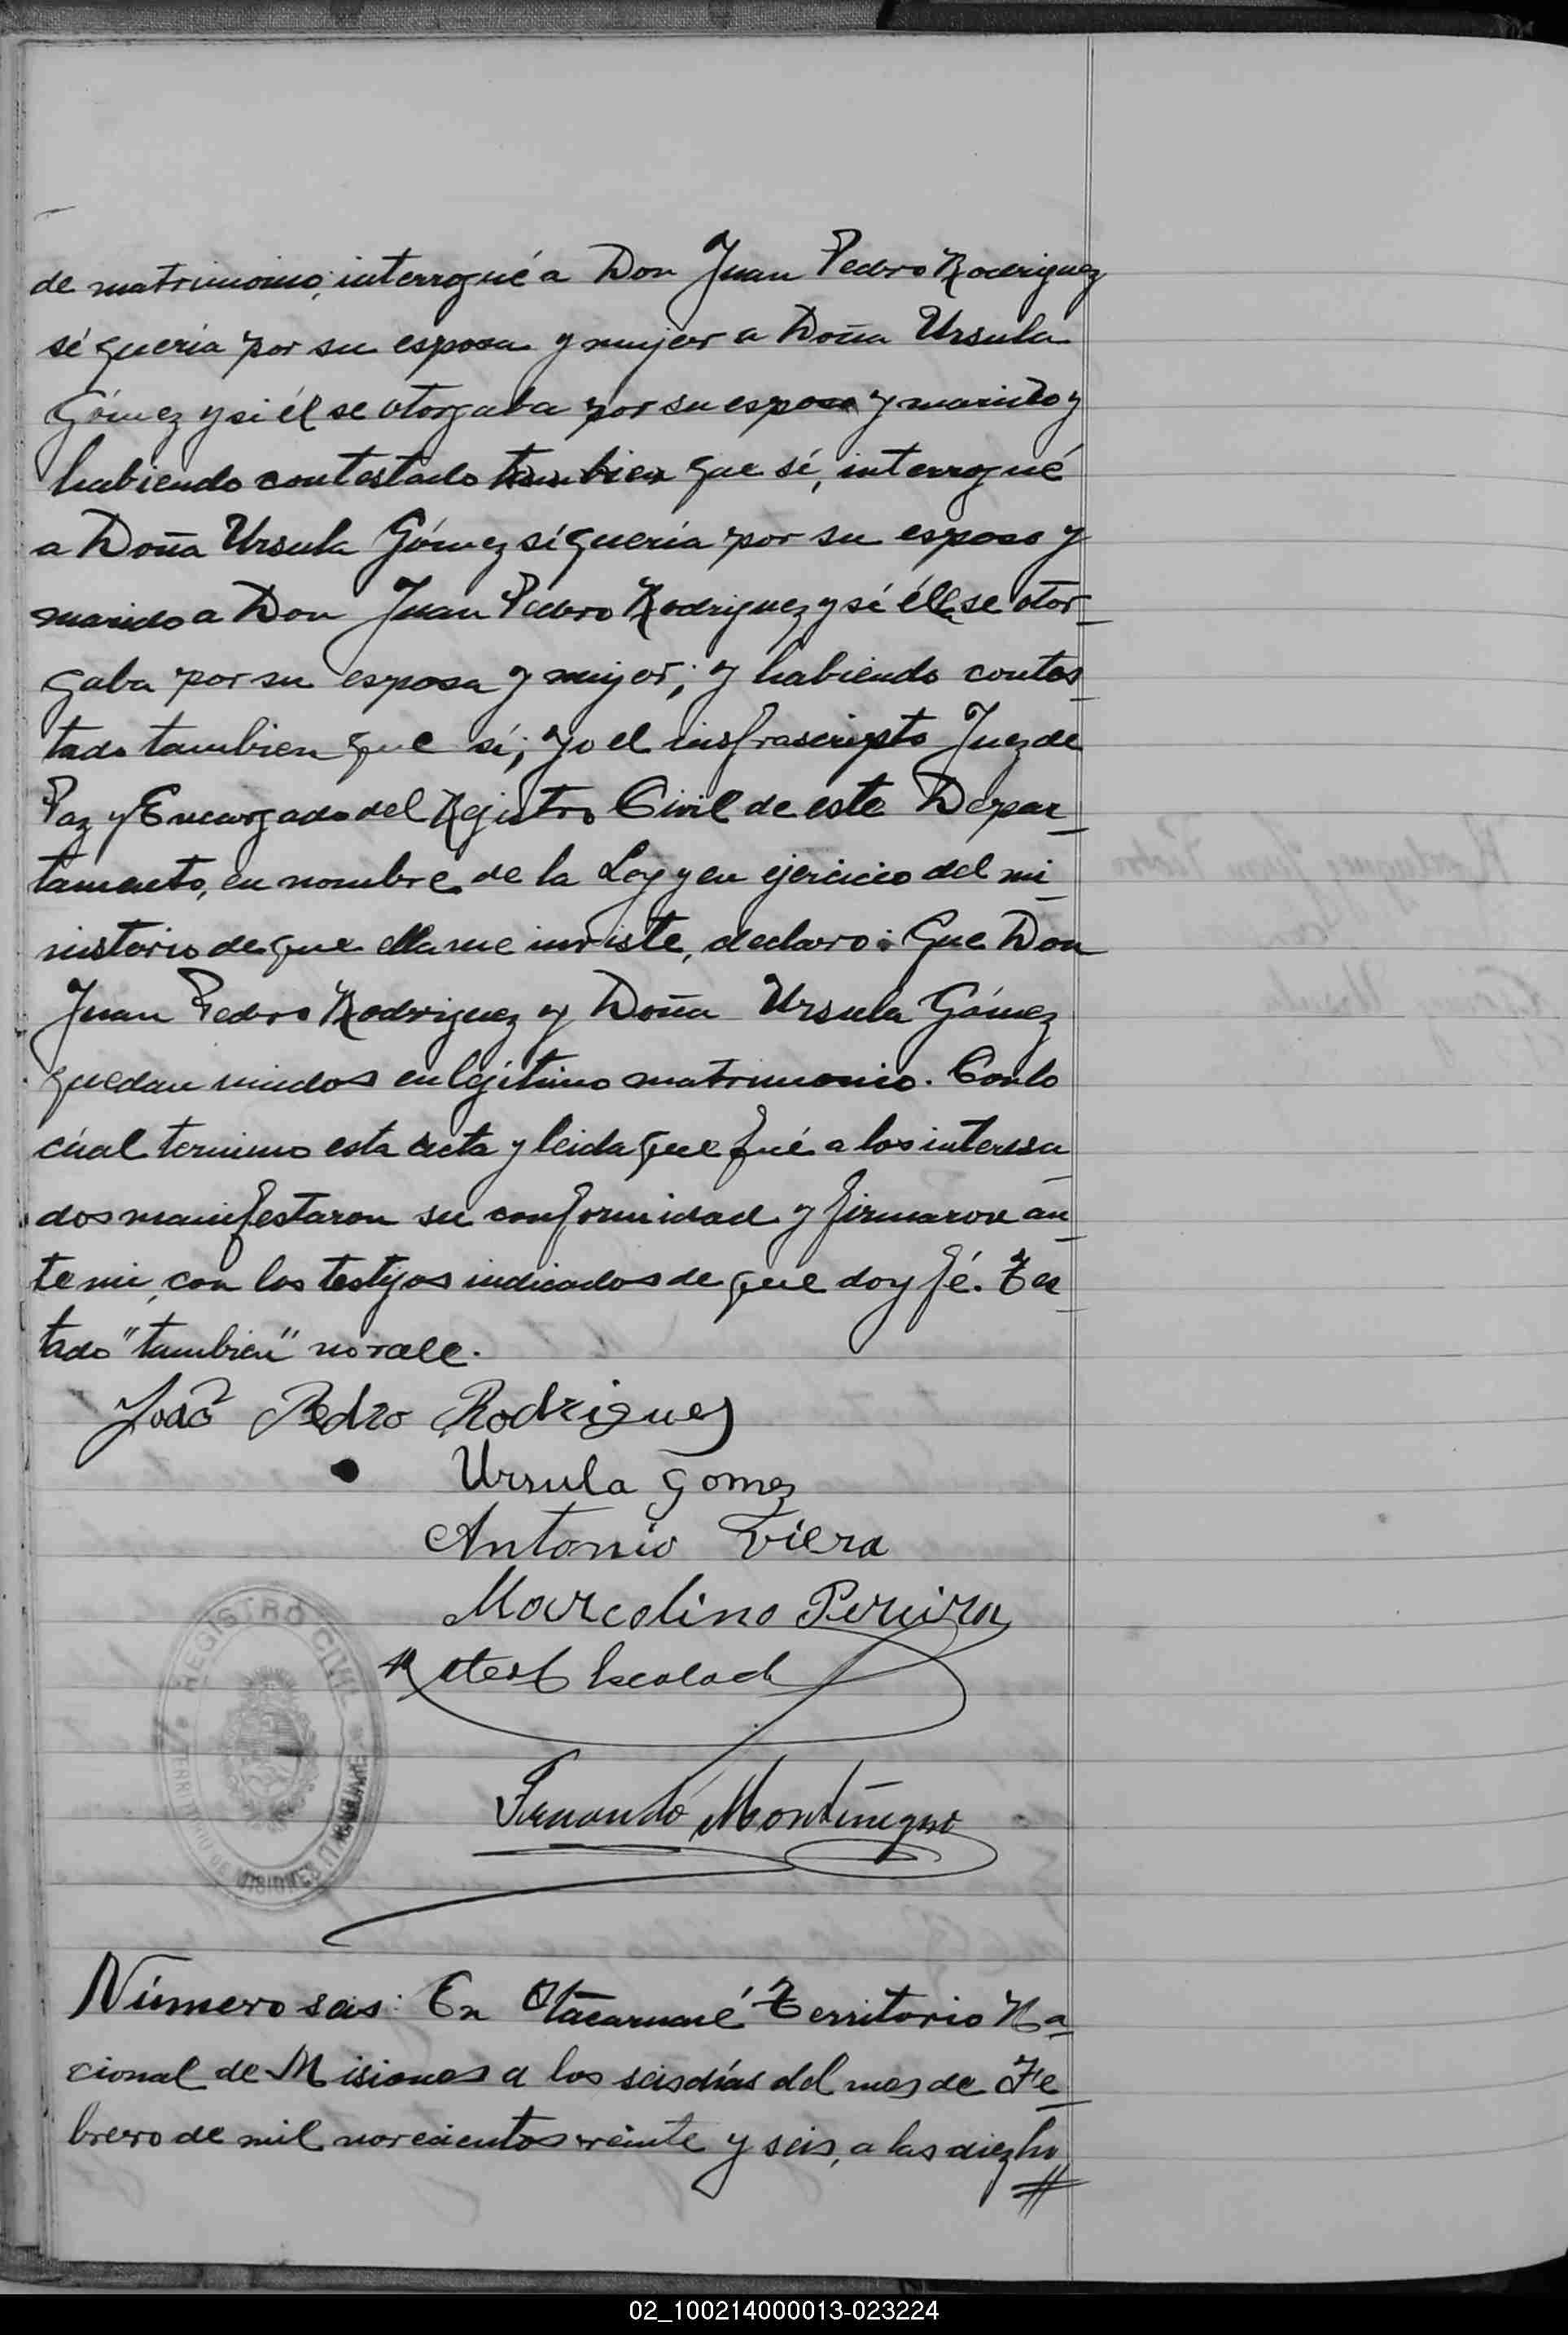 de matrimonio; interrogué a Don Juan Pedro Rodriguez
sí queria por su esposa y mujer a Doña Ursula
Gómez y si él se otorgaba por su esposo y marido y
habiendo contestado tambien que sí, interrogué
a Doña Ursula Gómez sí queria por su esposo y
marido a Don Juan Pedro Rodriguez y sí élla se otor
gaba por su esposa y mujer; y habiendo contes
tado tambien que sí; yo el insfrascripto Juez de
Paz y Encargado del Rejistro Civil de este Depar
tamento, en nombre de la Ley y en ejercicio del mi
nisterio de que ella me inviste, declaro: Que Don
Juan Pedro Rodriguez y Doña Ursula Gómez
quedan unidos en lejitimo matrimonio. Con lo
cúal termino esta acta y leida que fué a los interesa
dos manifestaron su conformidad y firmaron an
te mi, con los testigos indicados de que doy fé. Tes
tado "tambien" no vale.
Joaõ Pedro Rodrigues
Ursula Gomez
Antonio Viera
Marcolino Pereira
Fernando Montenegro
REGISTRO CIVIL
TERRITORIO DE MISIONES
Número seis: En Itacaruaré Territorio Na
cional de Misiones a los seis días del mes de Fe
brero de mil novecientos veinte y seis, a las diez ho
02_100214000013-023224